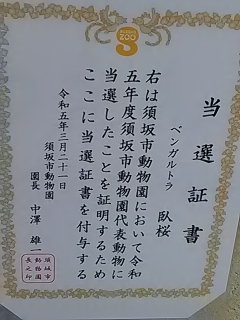 ZOO
当選証書
ベンガルトラ
臥桜
右は須坂市動物園において令和
五年度須坂市動物園代表動物に
当選したことを証明するため
ここに当選証書を付与する
令和五年三月二十一日
須坂市動物園
園長 中澤 雄一
須坂市
動物園
長之印